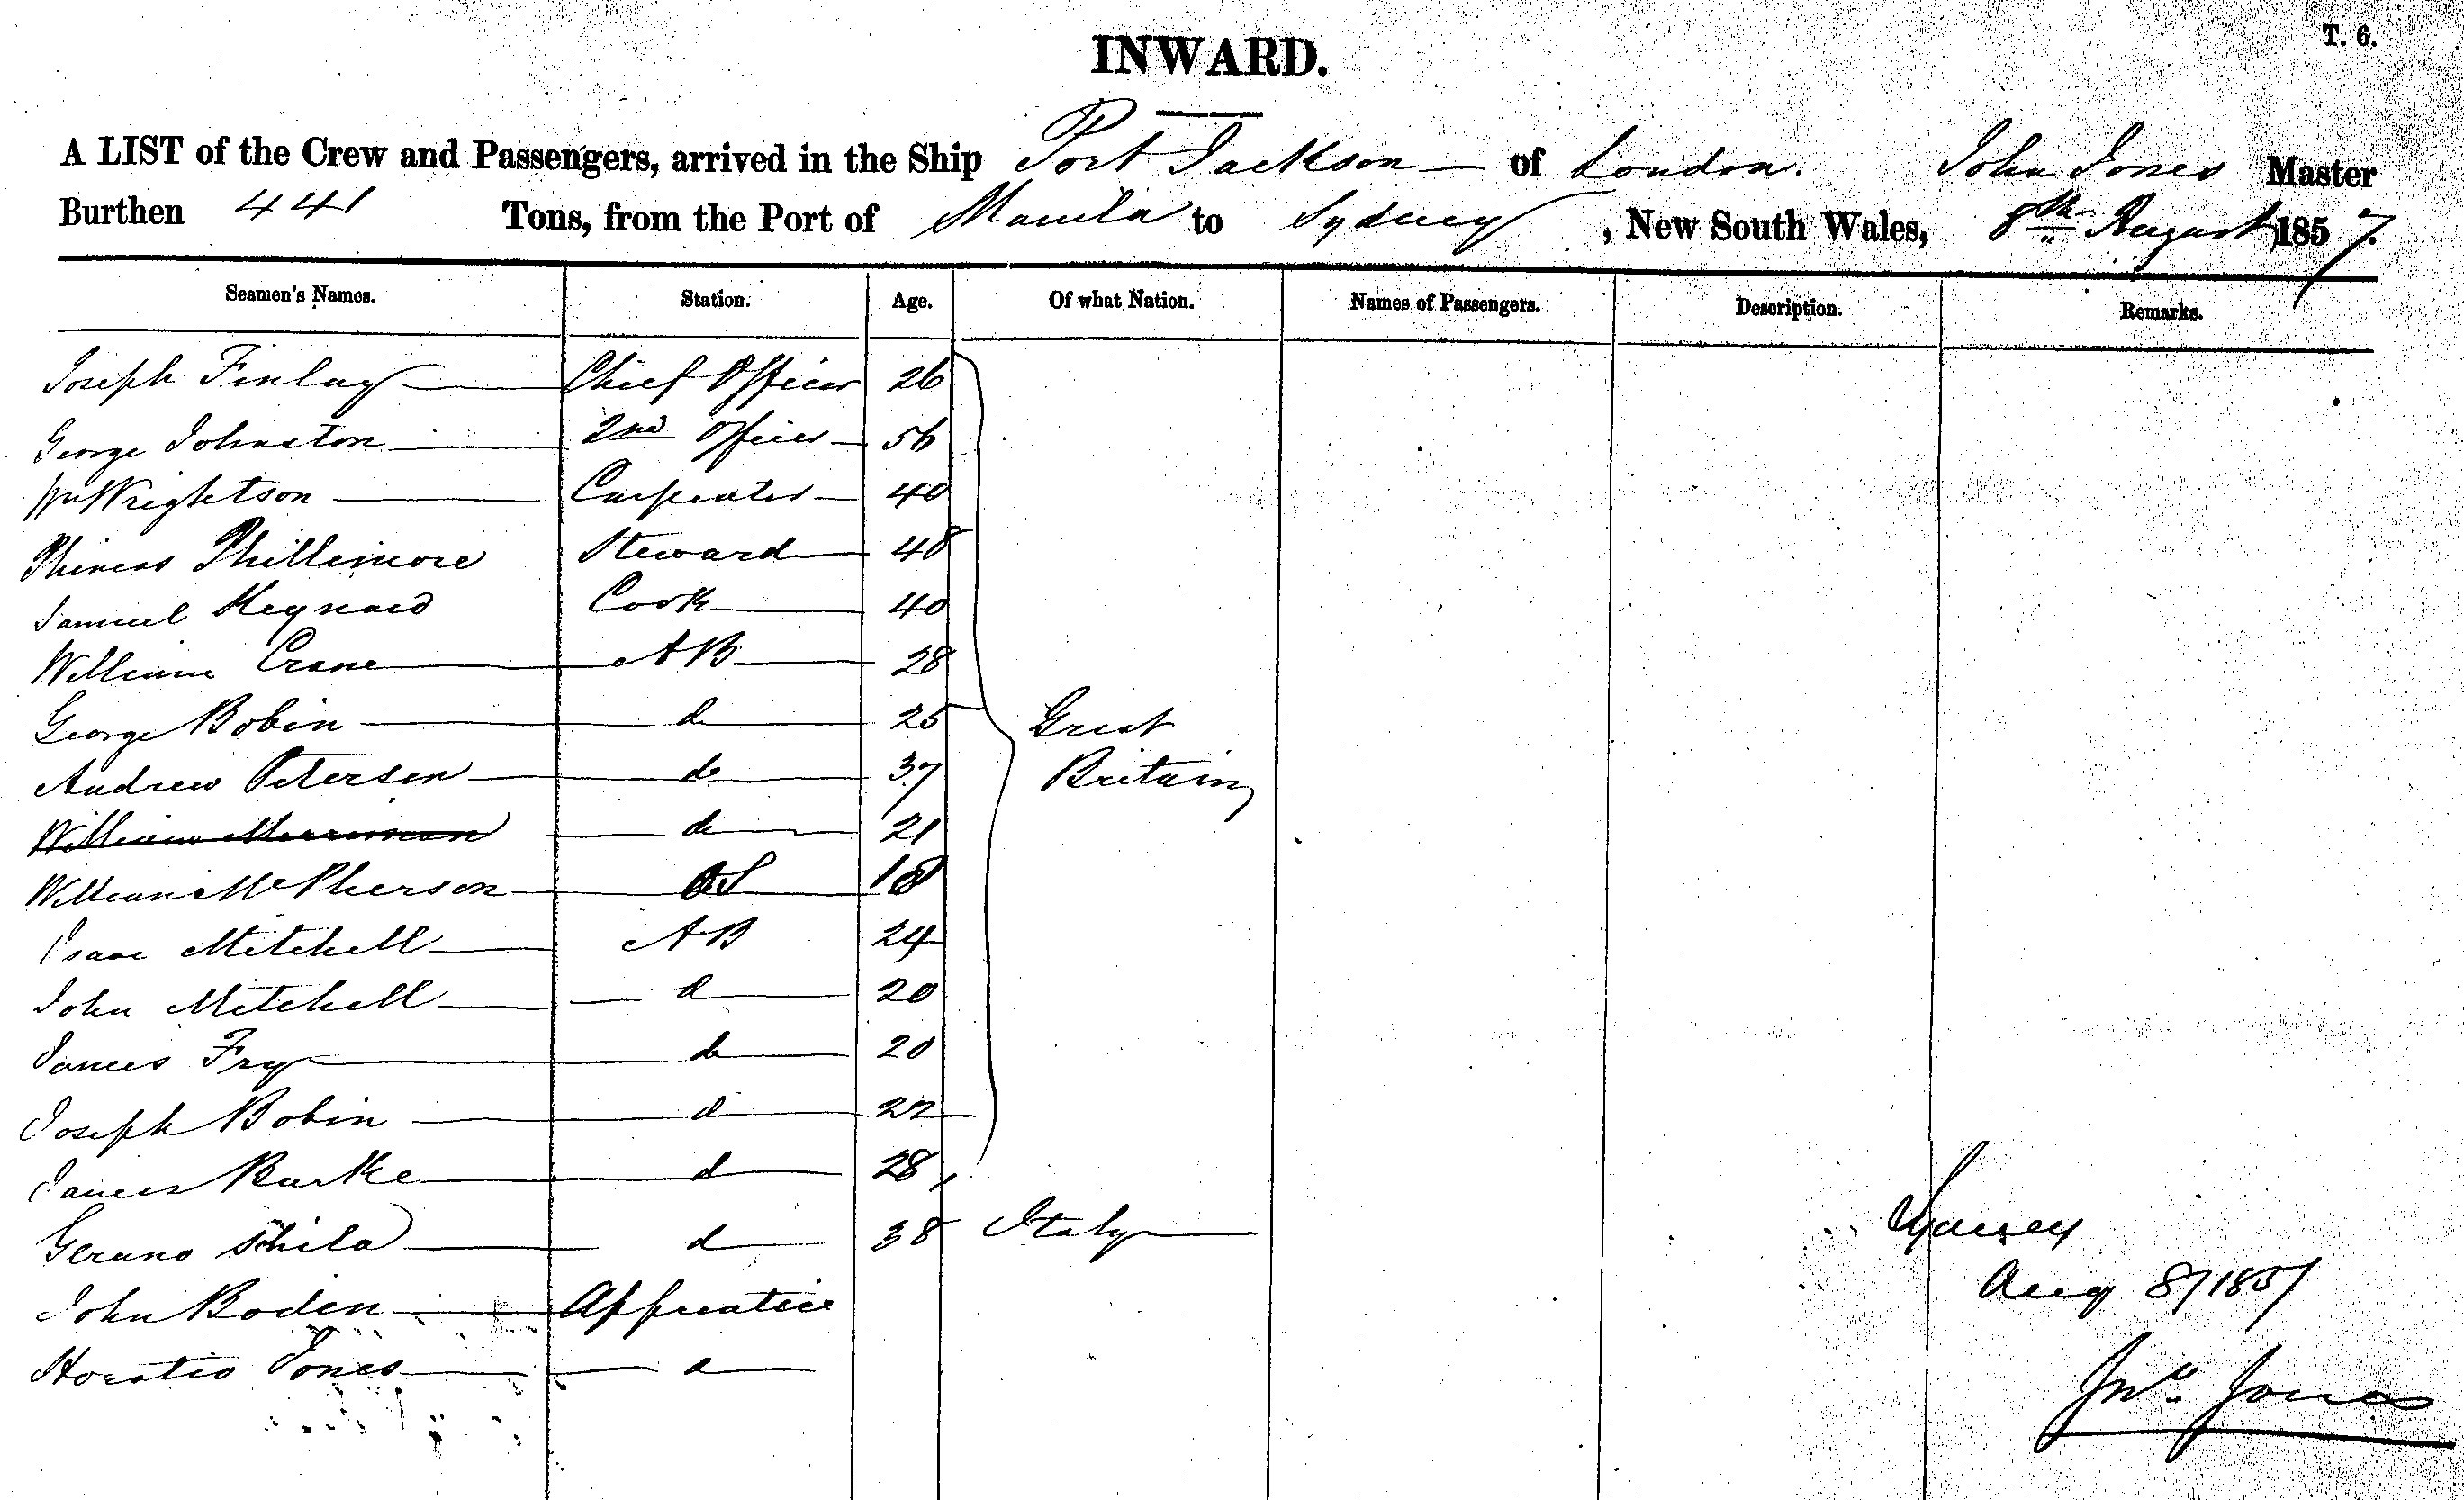 T. 6.
INWARD.
A LIST of the Crew and Passengers, arrived in the Ship Port Jackson of London. John Jones Master
Burthen 441 Tons, from the Port of Manila to Sydney, New South Wales, 8th August 1857.
Seamen's Names. Station. Age. Of what Nation. Names of Passengers. Description. Remarks.
Joseph Finlay Chief Officer 26
George Johnston 2nd Officer 56
Wm Wrightson Carpenter 40
Phineas Phillimore Steward 48
Samuel Cook 40
William Crane AB 28
George Bobin d 25 Great
Andrew Petersen do 37 Britain
William Merriman do 21
William McPherson OS 18
Isaac Mitchell AB 24
John Mitchell d 20
James Fry do 20
Joseph Bobin d 22
James Burke d 28
d 38 Italy
John Boden Apprentice
Horatio Jones d
Sydney
Aug 8/1857
Jno. Jones